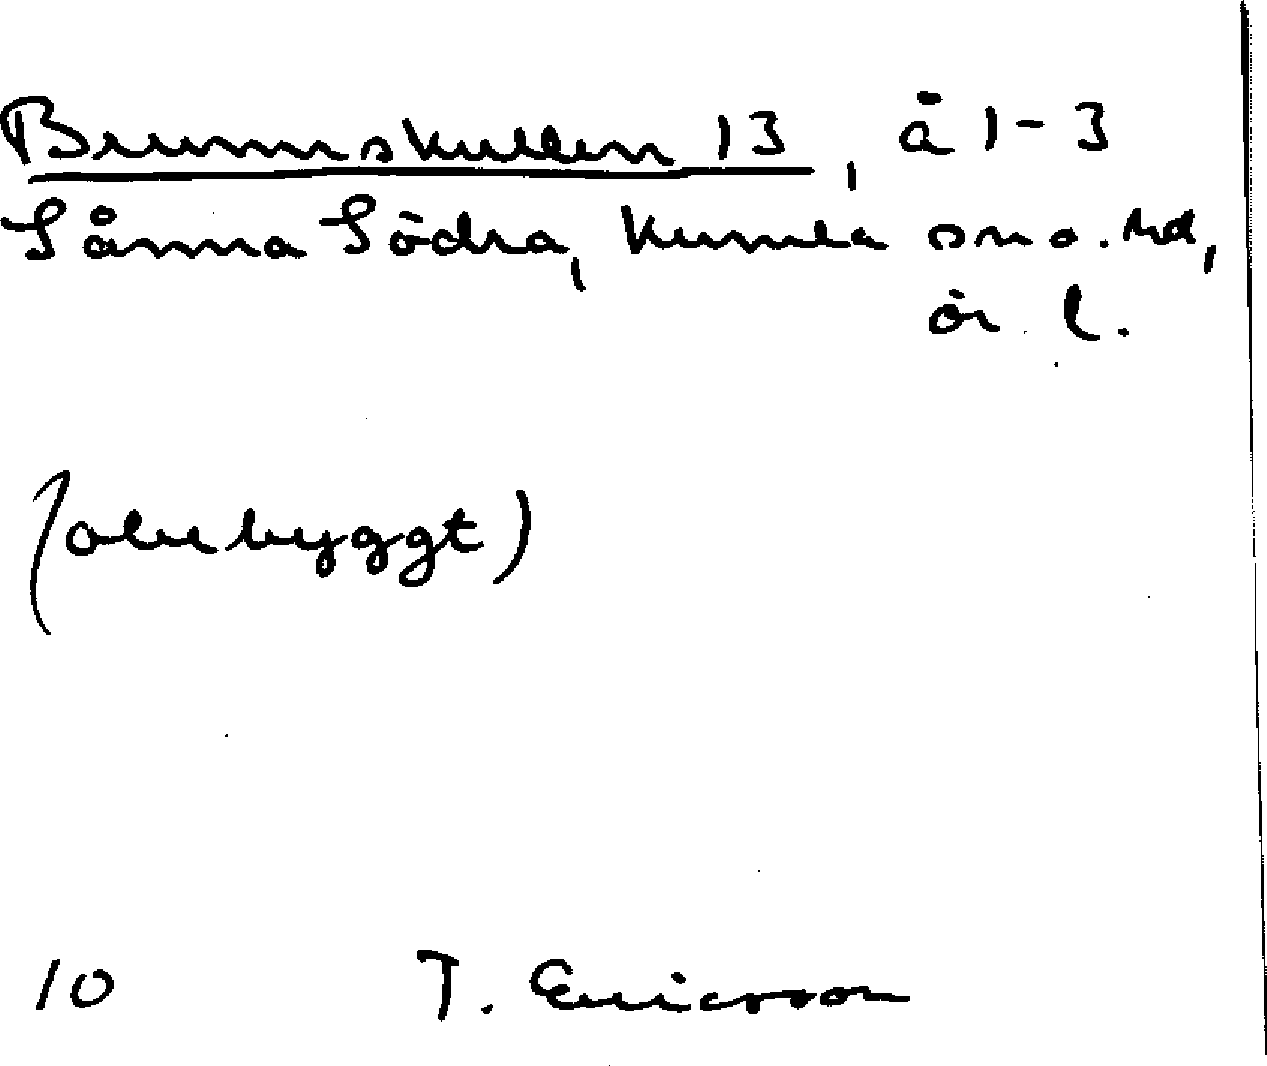 Brunnskullen 13, å 1-3
Sånna Södra, Kumla sn o. hd,
ör. l.
(obebyggt)
10 T. Ericsson